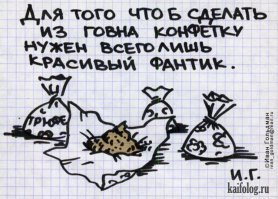 Для того что б сделать
из говна конфетку
нужен всего лишь
красивый фантик.
Трюфе
©Иван Гольдман
И.Г.
kaifolog.ru